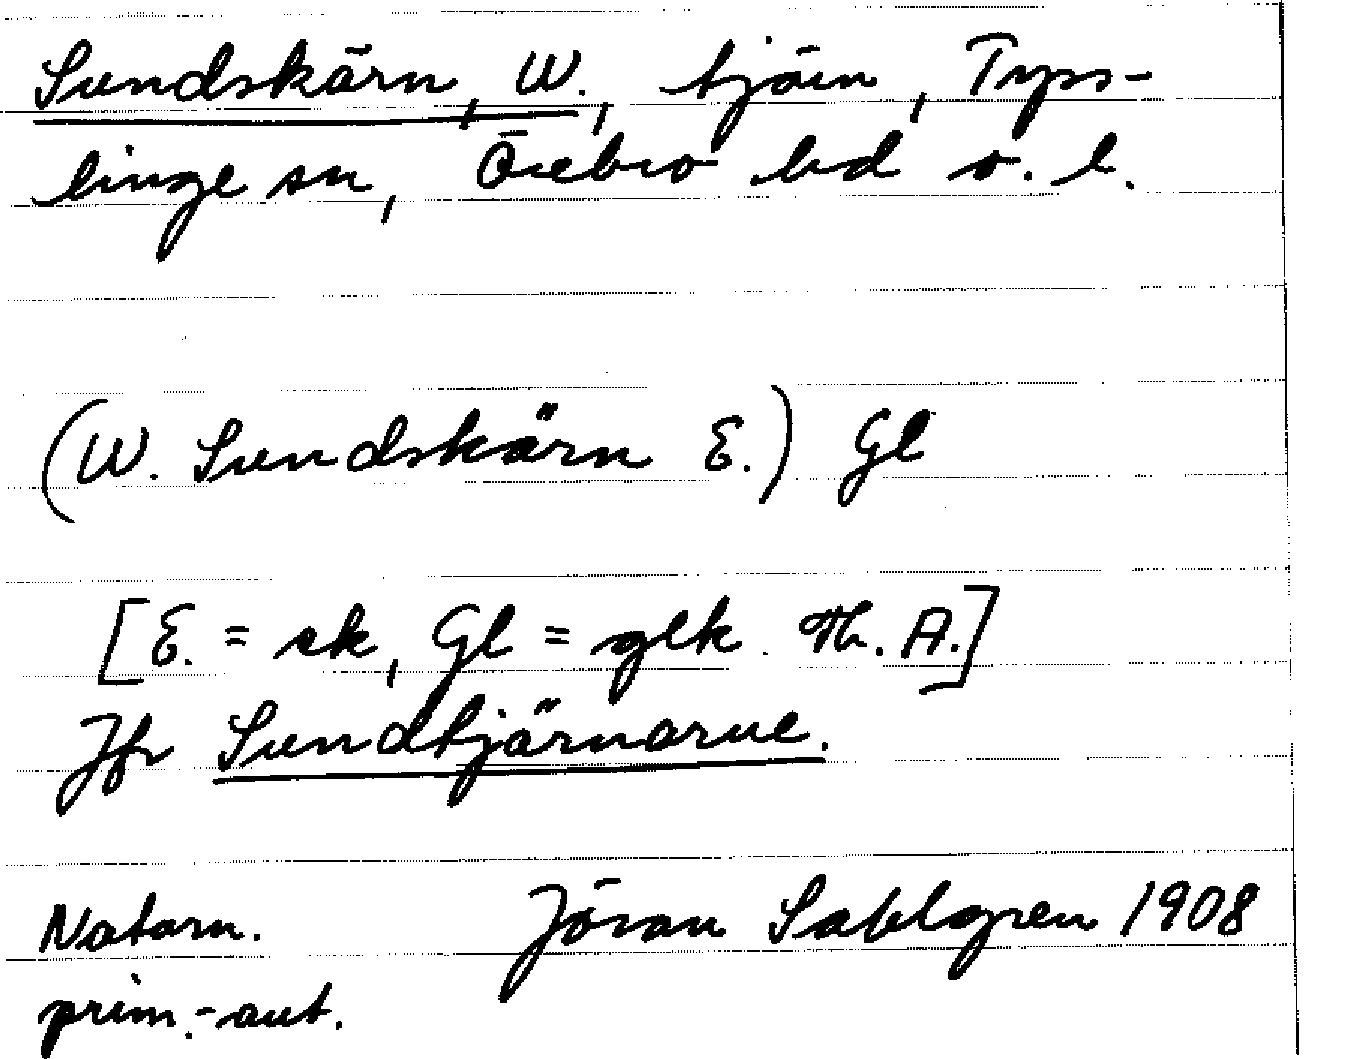 Sundskärn, W., tjärn, Tyss-
linge sn, Örebro hd o. l.
(W. Sundskärn E.) Gl
[E. = ek, Gl = glk. Th. A.]
Jfr Sundtjärnarne.
Natorn. Jöran Sahlgren 1908
prim.-aut.